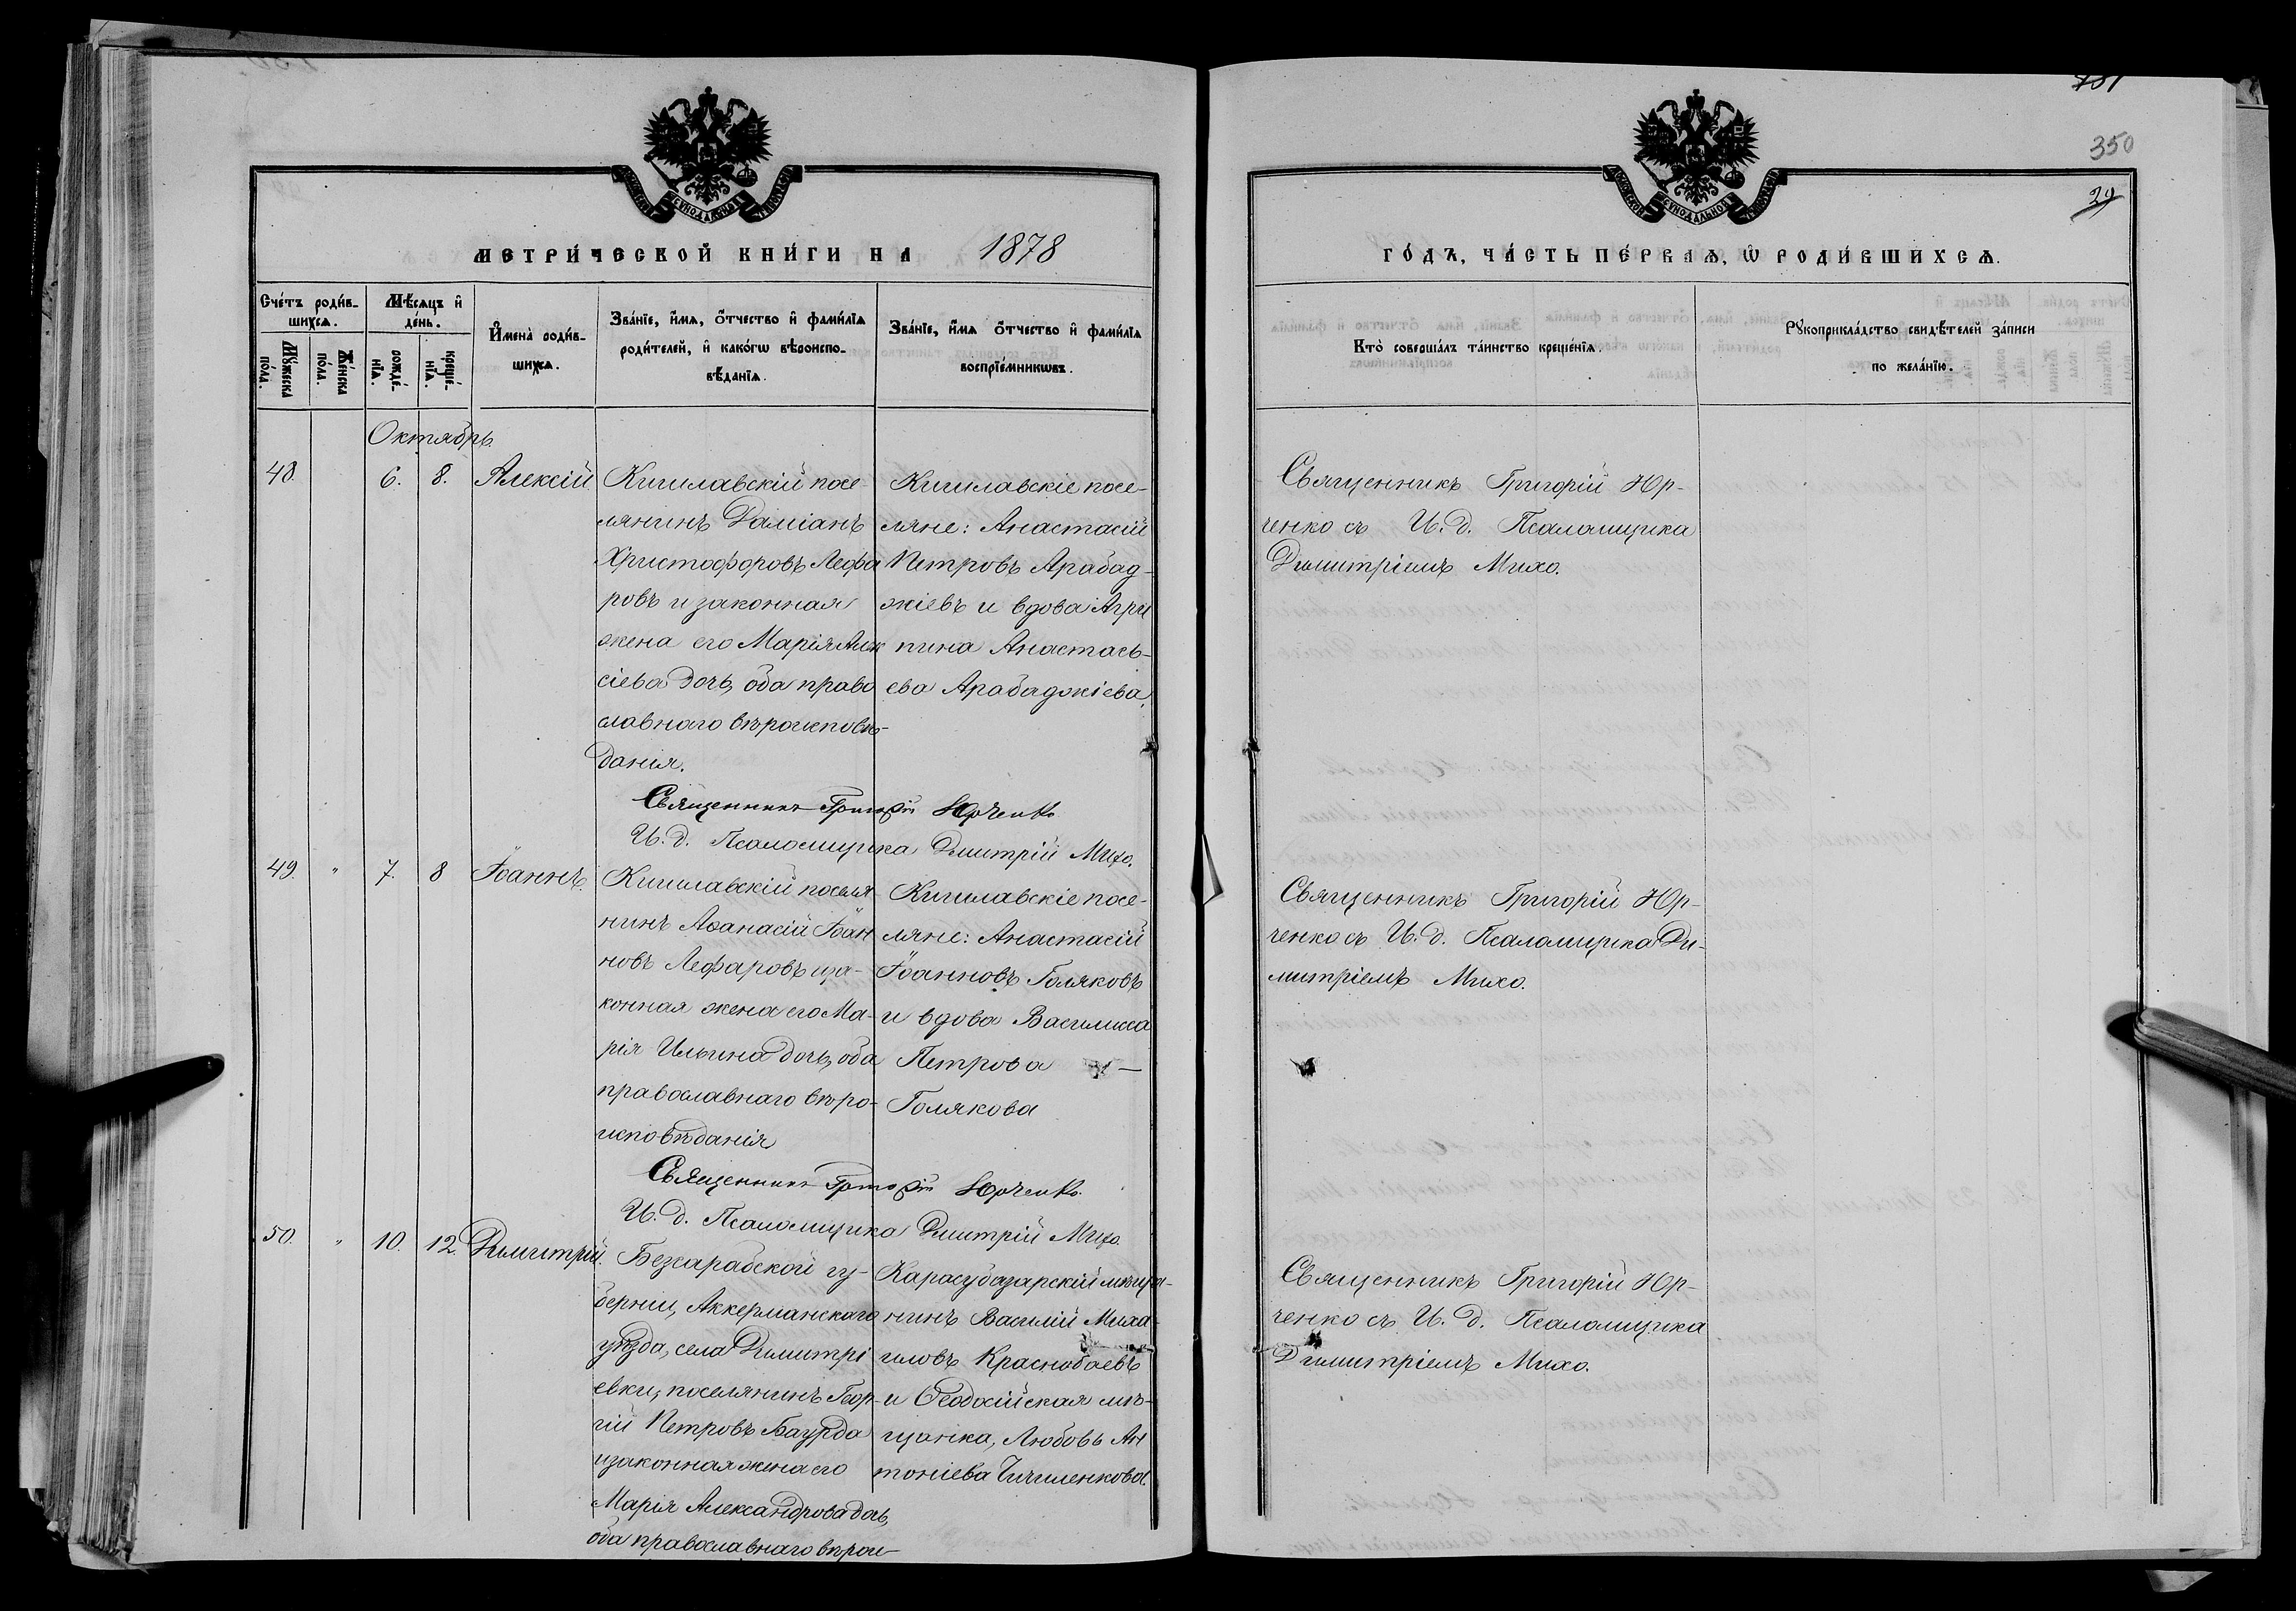 МЕТРИ́ЧЕСКОЙ КНИ́ГИ НА 1878
Сче́тъ роди́в-
шихсѧ.
Мѣ́сѧцъ и҆
де́нь.
И҆мена̀ роди́в-
шихсѧ.
Зва́нїе, и҆́мѧ, ѻ҆́тчество и҆ фами́лїѧ
роди́телей, и҆ како́гѡ вѣроиспо-
вѣ́данїѧ.
Зва́нїе, и҆́мѧ ѻ҆́тчество и҆ фами́лїѧ
воспрїе́мникѡвъ.
Мꙋ́жеска
по́ла.
Же́нска
по́ла.
рожде́-
нїѧ.
креще́-
нїѧ.
Октябрь.
48. 6. 8. Алексій
Кишлавскій посе-
лянинъ Даміанъ
Христофоровъ Лефа
ровъ и законная
жена его Марія Алек
сіева дочь, оба право
славнаго вѣроисповѣ-
данія.
Кишлавскіе посе-
ляне: Анастасій
Петровъ Арабад-
жіевъ и вдова Агри
пина Анастась-
ева Арабаджіева.
Священникъ Григорій Юрченко
И. д. Псаломщика Димитрій Михо.
49. " 7. 8 Іоаннъ.
Кишлавскій поселя
нинъ Аѳанасій Іоан
новъ Лефаровъ и за-
конная жена его Ма-
рія Ильина дочь, оба
православнаго вѣро-
исповѣданія
Кишлавскіе посе-
ляне: Анастасій
Іоанновъ Голяковъ
и вдова Василисса
Петрова —
Голякова
Священникъ Григорій Юрченко.
И. д. Псаломщика Димитрій Михо.
50. " 10. 12. Димитрій.
Безсарабской гу-
берніи, Аккерманскаго
уѣзда, села Димитрі
евки, поселянинъ Геор-
гій Петровъ Баурда
и законная жена его
Марія Александрова дочь,
оба православнаго вѣрои-
Карасубазарскій мѣща-
нинъ Василій Миха-
иловъ Краснобаевъ
и Ѳеодосійская мѣ-
щанка, Любовь Ан
тоніева Чичиленкова.
350
29
ГО́ДЪ, ЧА́СТЬ ПЕ́РВАѦ, Ѡ҆ РОДИ́ВШИХСѦ.
Кто̀ соверша́лъ та́инство креще́нїѧ.
Рꙋкоприкла́дство свидѣ́телей за́писи
по жела́нїю.
Священникъ Григорій Юр-
ченко съ И. д. Псаломщика
Димитріемъ Михо.
Священникъ Григорій Юр-
ченко съ И. д. Псаломщика Ди-
митріемъ Михо.
Священникъ Григорій Юр-
ченко съ И. д. Псаломщика
Димитріемъ Михо.